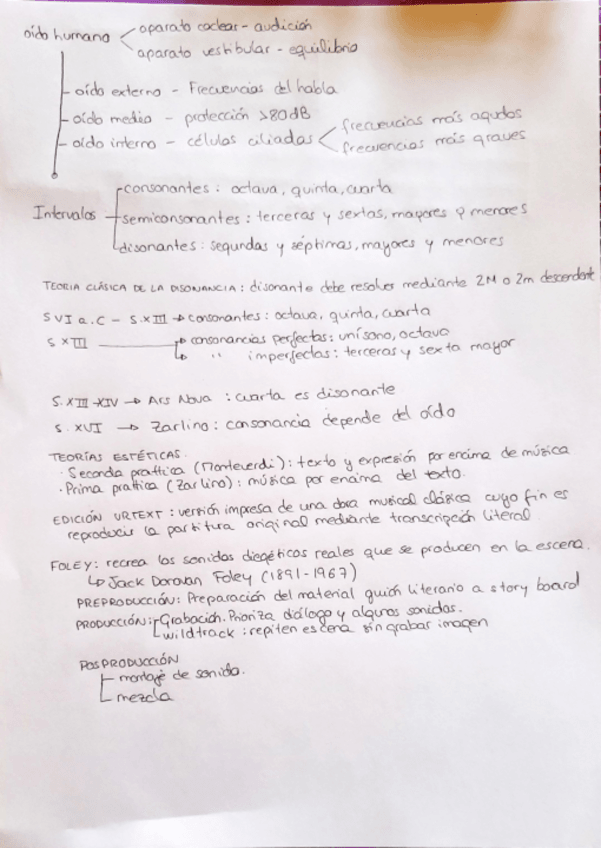 oído humano < aparato coclear - audición
aparato vestibular - equilibrio
- oído externo - Frecuencias del habla
- oído medio - protección >80dB
- oído interno - células ciliadas < frecuencias más agudas
frecuencias más graves
Intervalos
consonantes: octava, quinta, cuarta
semiconsonantes: terceras y sextas, mayores y menores
disonantes: segundas y séptimas, mayores y menores
TEORIA CLÁSICA DE LA DISONANCIA: disonante debe resolver mediante 2M o 2m descendente
S VI a.C - S.XIII → consonantes: octava, quinta, cuarta
S XIII → consonancias perfectas: unísono, octava
→ " imperfectas: terceras y sexta mayor
S. XIII-XIV → Ars Nova: cuarta es disonante
S. XVI → Zarlino: consonancia depende del oído
TEORÍAS ESTÉTICAS.
· Seconda prattica (Monteverdi): texto y expresión por encima de música
· Prima prattica (Zarlino): música por encima del texto.
EDICIÓN URTEXT: versión impresa de una obra musical clásica cuyo fin es
reproducir la partitura original mediante transcripción literal
FOLEY: recrea los sonidos diegéticos reales que se producen en la escena.
↳ Jack Donovan Foley (1891-1967)
PREPRODUCCIÓN: Preparación del material guión literario a story board
PRODUCCIÓN: Grabación. Prioriza diálogo y algunos sonidos.
wildtrack: repiten escena sin grabar imagen
POSPRODUCCIÓN
montaje de sonido.
mezcla